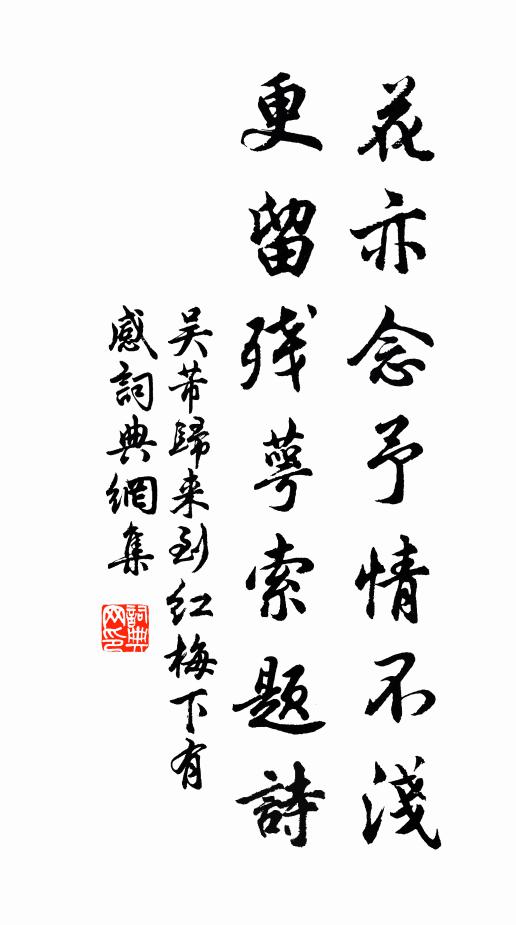 花亦念予情不淺
更留残萼索題詩
吴芾歸来到红梅下有
感詞典網集
詞典網印